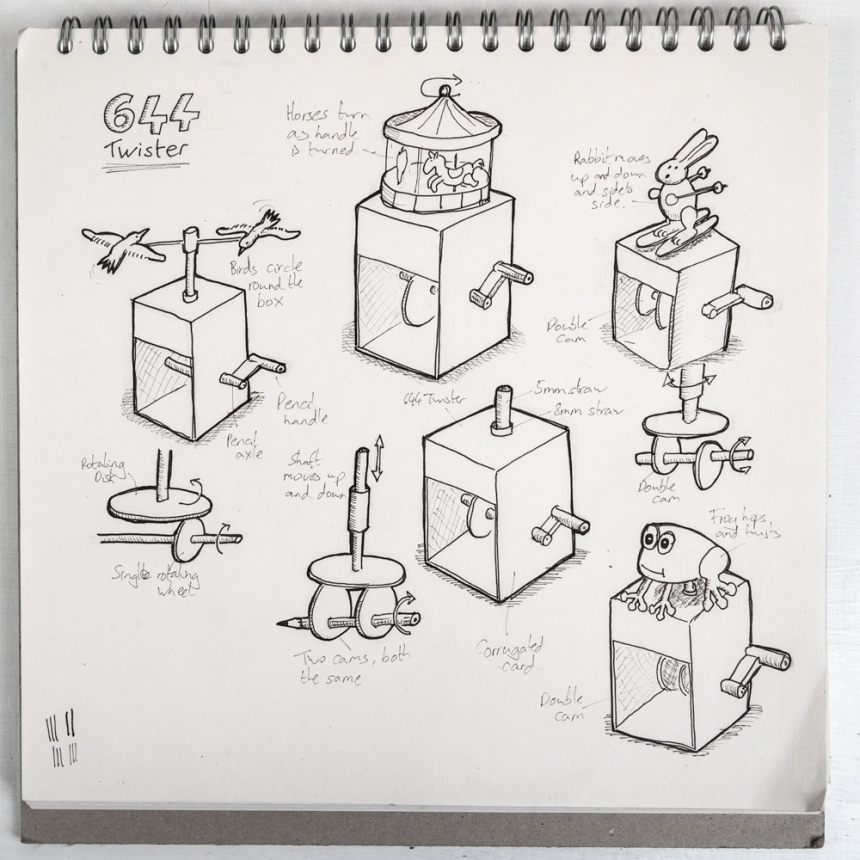 644
Twister
Horses turn
as handle
is turned
Rabbit moves
up and down
and side to
side.
Birds circle
round the
box
Double
cam
Pencil
handle
Pencil
axle
644 Twister
5mm straw
8mm straw
Rotating
Disk
Shaft
moves up
and down
Double
cam
Single rotating
wheel
Frog hops
and twists
Two cams, both
the same
Corrugated
card
Double
cam